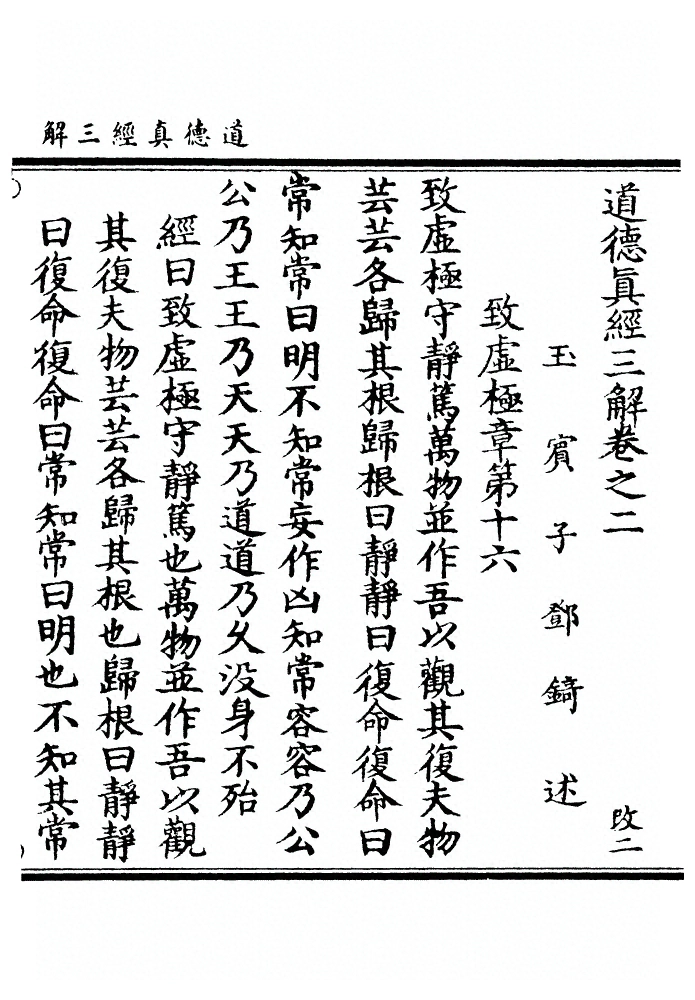 道德真經三解
道德眞經三解卷之二
改二
玉賓子鄧錡述
致虛極章第十六
致虛極守靜篤萬物並作吾以觀其復夫物
芸芸各歸其根歸根曰靜靜曰復命復命曰
常知常曰明不知常妄作凶知常容容乃公
公乃王王乃天天乃道道乃久没身不殆
經曰致虛極守靜篤也萬物並作吾以觀
其復夫物芸芸各歸其根也歸根曰靜靜
曰復命復命曰常知常曰明也不知其常